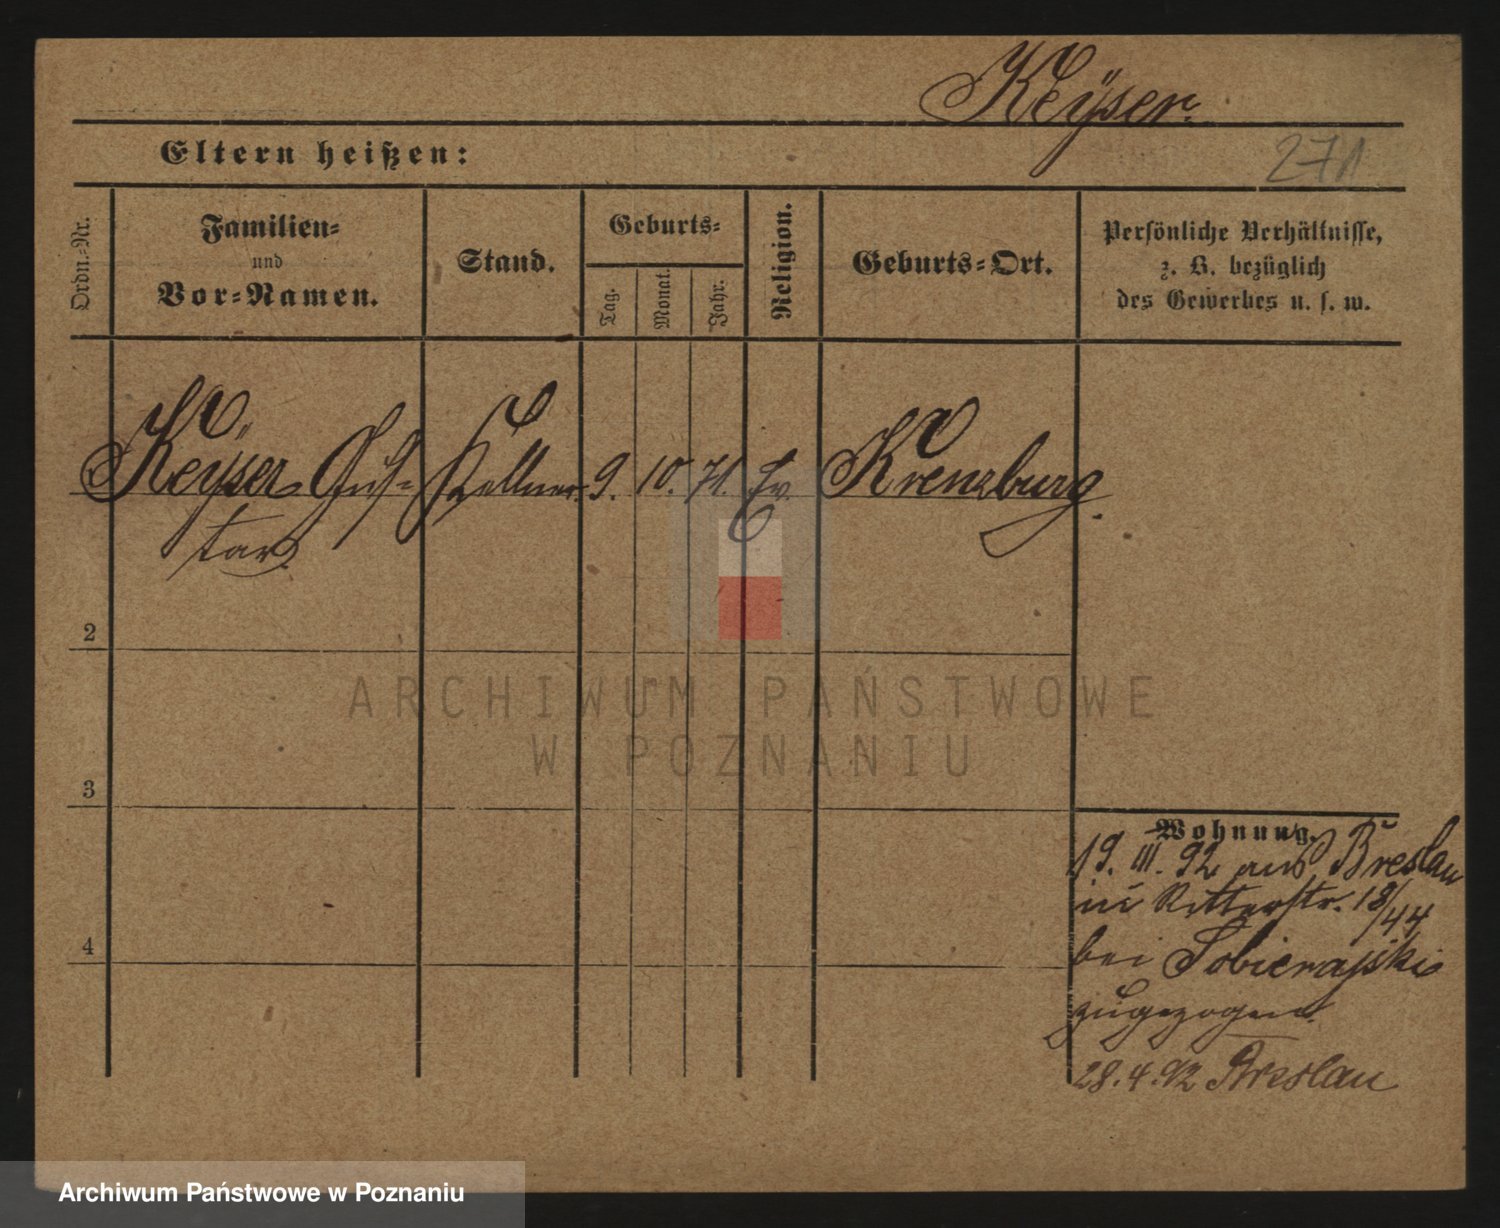 Keÿser.
Eltern heißen:
271
Ordn.-Nr.
Familien-
und
Vor-Namen.
Stand.
Geburts-
Tag.
Monat.
Jahr.
Religion.
Geburts-Ort.
Persönliche Verhältnisse,
z. B. bezüglich
des Gewerbes u. s. w.
Keÿser Gus-
tav.
Kellner.
9.
10.
71.
Ev.
Kreuzburg.
2
3
4
ARCHIWUM PAŃSTWOWE
W POZNANIU
Wohnung.
19. III. 92 aus Breslau
Ritterstr. 18/44
bei Sobierajski
zugezogen.
28.4.92 Breslau
Archiwum Państwowe w Poznaniu